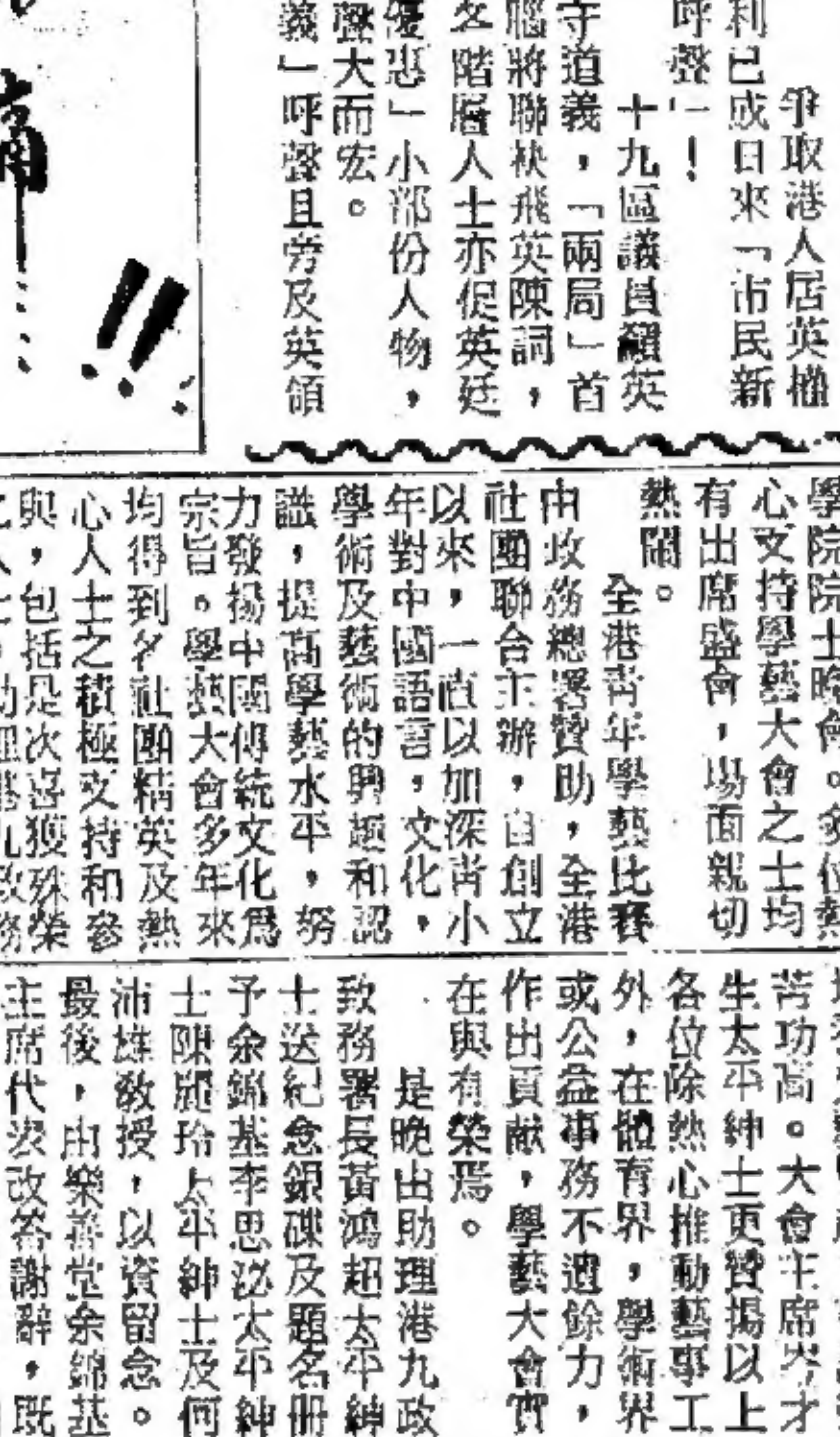 爭取港人居英權
利已成日來「市民新
呼聲」!
十九區議員籲英
守道義,「兩局」首
腦將聯袂飛英陳詞,
各階層人士亦促英廷
優惠」小部份人物,
聲大而宏。
義」呼聲且旁及英領
學院院士晚會。多位熱
心支持學藝大會之士均
有出席盛會,場面親切
熱鬧。
全港青年學藝比賽
由政務總署贊助,全港
社團聯合主辦,自創立
以來,一直以加深青少
年對中國語言,文化,
學術及藝術的興趣和認
識,提高學藝水平,努
力發揚中國傳統文化為
宗旨。學藝大會多年來
均得到各社團精英及熱
心人士之積極支持和參
與,包括是次喜獲殊榮
苦功高。大會主席岑才
生太平紳士更贊揚以上
各位除熱心推動藝事工
外,在體育界,學術界
或公益事務不遺餘力,
作出貢献,學藝大會實
在與有榮焉。
是晚由助理港九政
致務署長黃鴻超太平紳
士送紀念銀碟及題名冊
予余錦基李思泌太平紳
士陳麗玲太平紳士及何
沛雄教授,以資留念。
最後,由樂善堂余錦基
主席代表致答謝辭,既